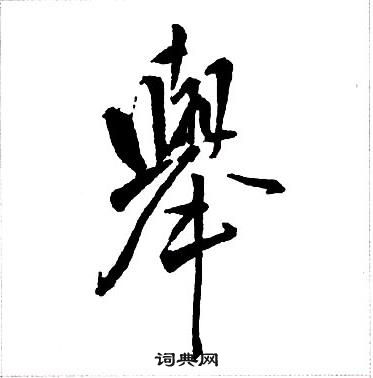 舉
词典网